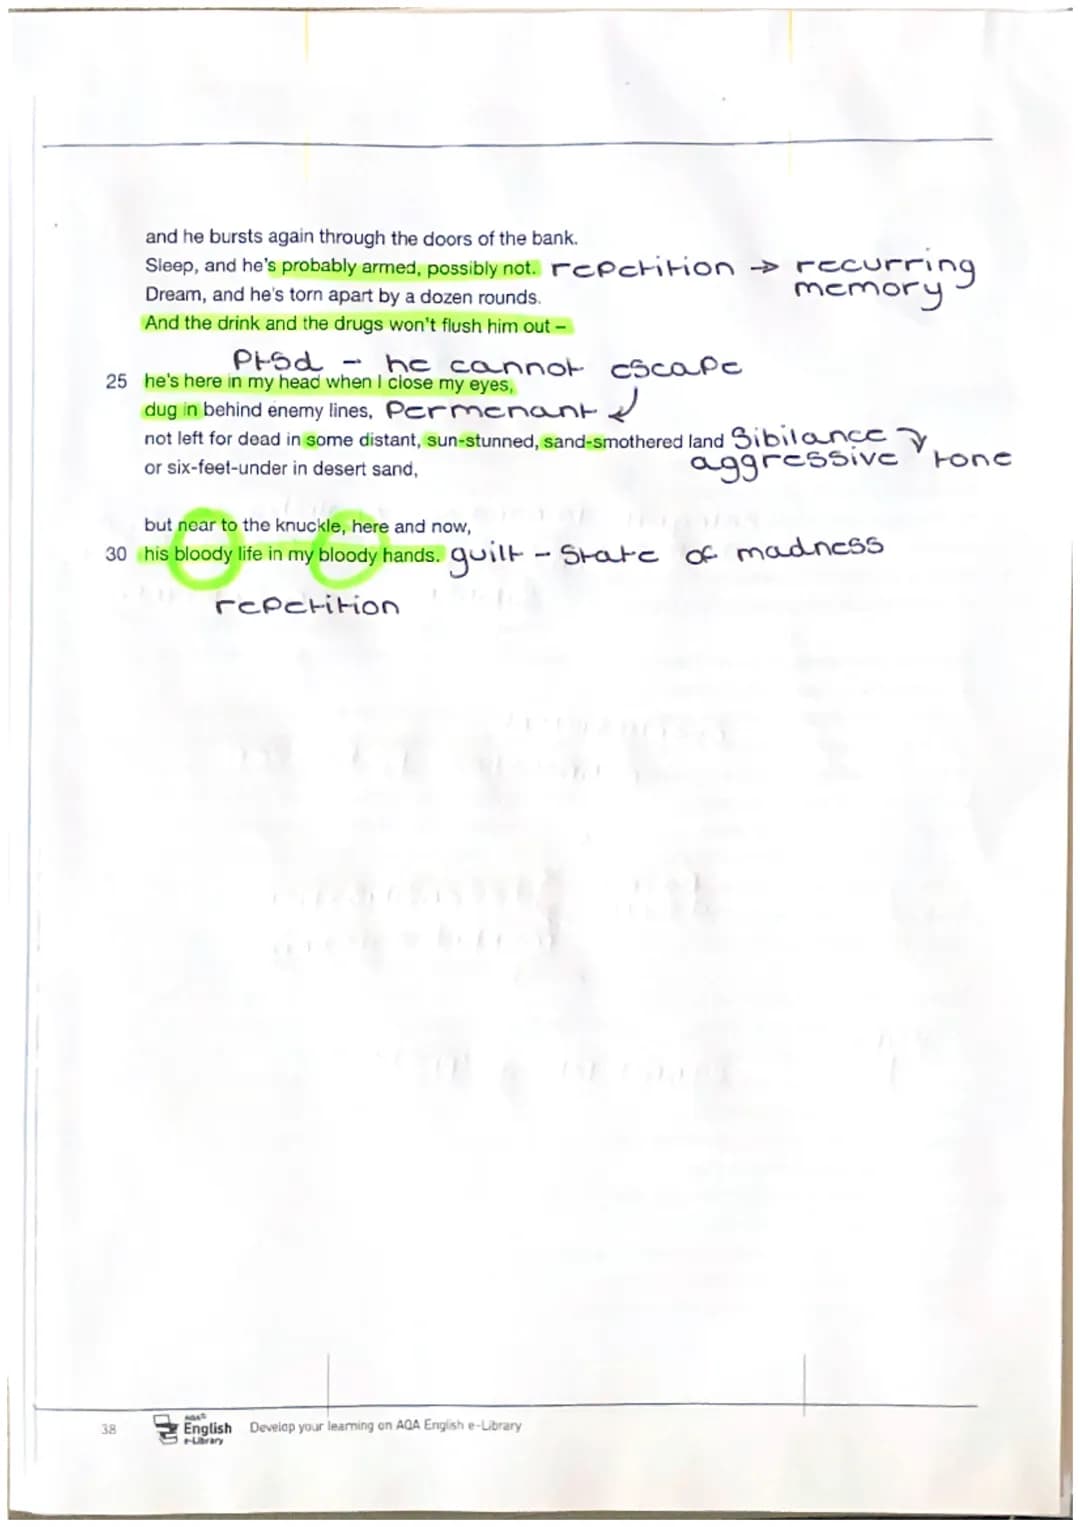 and he bursts again through the doors of the bank.
Sleep, and he's probably armed, possibly not. repetition → recurring memory
Dream, and he's torn apart by a dozen rounds.
And the drink and the drugs won't flush him out –
Ptsd - he cannot escape
25 he's here in my head when I close my eyes,
dug in behind enemy lines, Permenant
not left for dead in some distant, sun-stunned, sand-smothered land Sibilance aggressive tone
or six-feet-under in desert sand,
but near to the knuckle, here and now,
30 his bloody life in my bloody hands. guilt - State of madness
repetition
38 AQA English e-Library Develop your learning on AQA English e-Library